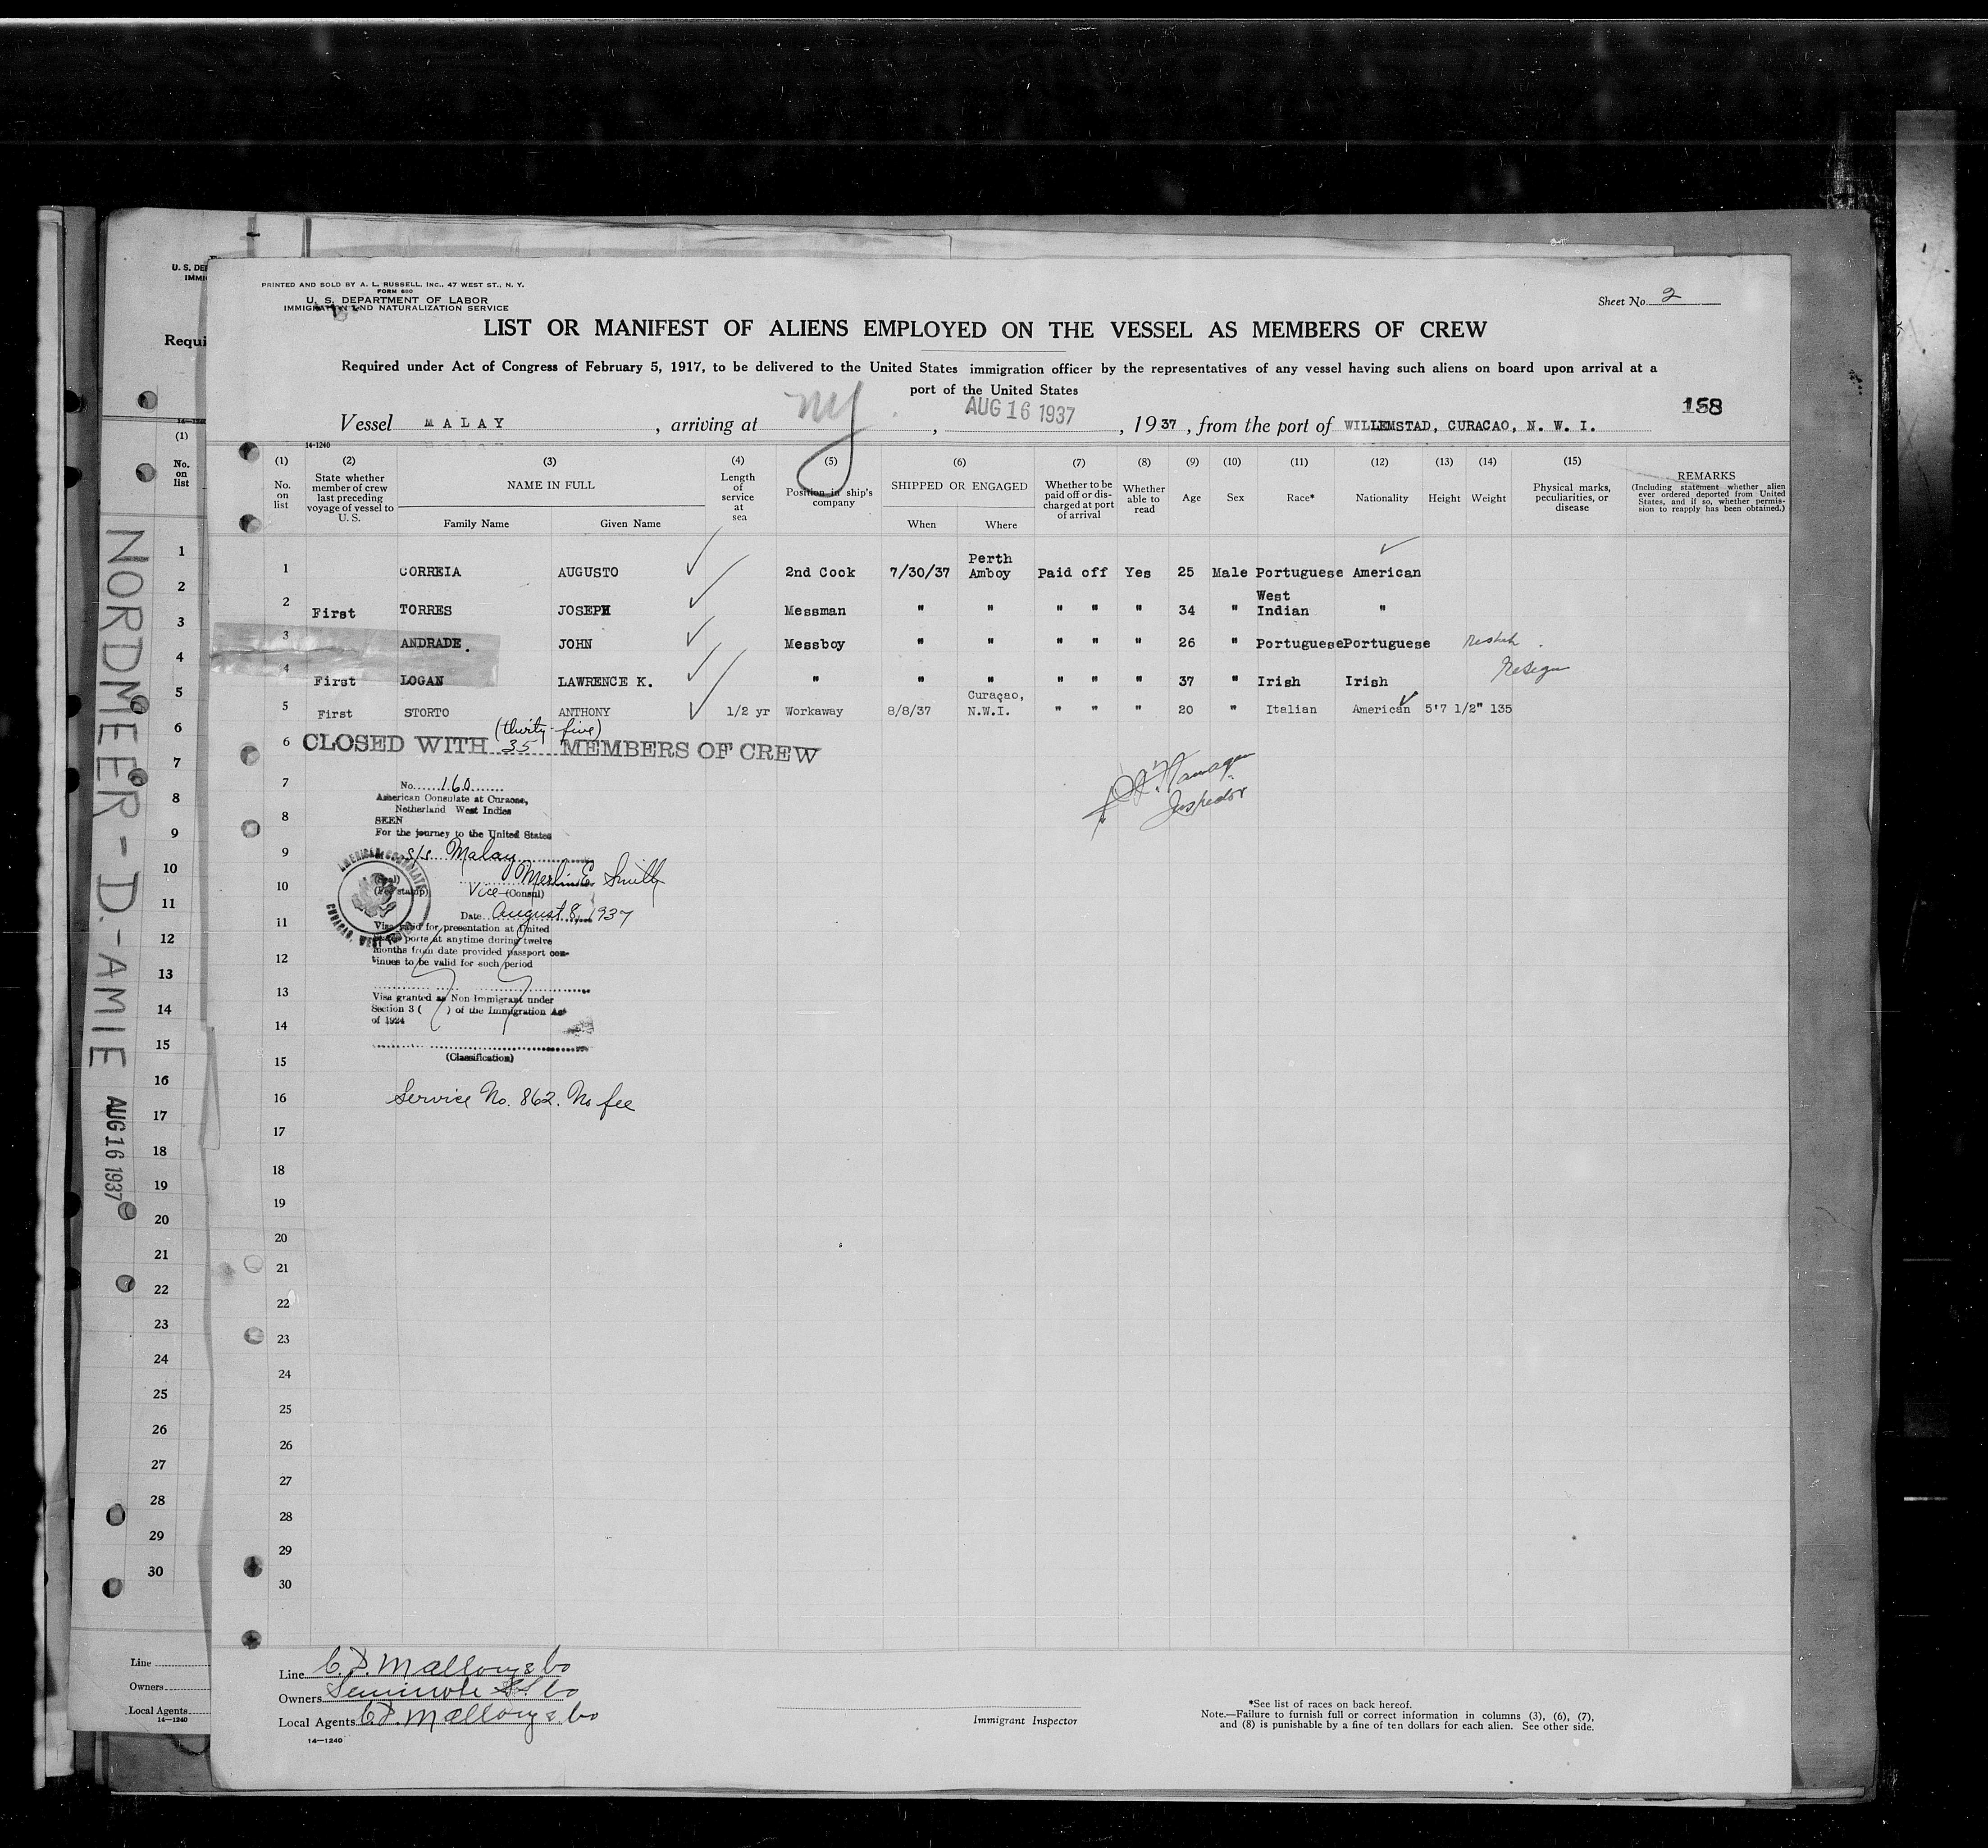 PRINTED AND SOLD BY A. L. RUSSELL, INC., 47 WEST ST., N. Y.
FORM 680
U. S. DEPARTMENT OF LABOR
IMMIGRATION AND NATURALIZATION SERVICE
Sheet No. 2
LIST OR MANIFEST OF ALIENS EMPLOYED ON THE VESSEL AS MEMBERS OF CREW
Required under Act of Congress of February 5, 1917, to be delivered to the United States immigration officer by the representatives of any vessel having such aliens on board upon arrival at a
port of the United States
158
Vessel MALAY, arriving at NY, AUG 16 1937, 1937, from the port of WILLEMSTAD, CURACAO, N. W. I.
14-1240
(1) No. on list
(2) State whether member of crew last preceding voyage of vessel to U. S.
(3) NAME IN FULL Family Name Given Name
(4) Length of service at sea
(5) Position in ship's company
(6) SHIPPED OR ENGAGED When Where
(7) Whether to be paid off or discharged at port of arrival
(8) Whether able to read
(9) Age
(10) Sex
(11) Race*
(12) Nationality
(13) Height
(14) Weight
(15) Physical marks, peculiarities, or disease
REMARKS (Including statement whether alien ever ordered deported from United States, and if so, whether permission to reapply has been obtained.)
1 CORREIA AUGUSTO 2nd Cook 7/30/37 Perth Amboy Paid off Yes 25 Male Portuguese American
2 First TORRES JOSEPH Messman " " " " " 34 " West Indian "
3 ANDRADE. JOHN Messboy " " " " " 26 " Portuguese Portuguese
4 First LOGAN LAWRENCE K. " " " " " " 37 " Irish Irish
5 First STORTO ANTHONY 1/2 yr Workaway 8/8/37 Curaçao, N.W.I. " " " 20 " Italian American 5'7 1/2" 135
(thirty-five)
6 CLOSED WITH 35 MEMBERS OF CREW
Inspector
7
8
9
10
11
12
13
14
15
16
17
18
19
20
21
22
23
24
25
26
27
28
29
30
No. 160
American Consulate at Curacao,
Netherland West Indies
SEEN
For the journey to the United States
s/s Malay
Merlin E. Smith
(Seal)
(Fee stamp) Vice (Consul)
AMERICAN CONSULATE
CURACAO, WEST INDIES
Date August 8, 1937
Visa valid for presentation at United
States ports at anytime during twelve
months from date provided passport con-
tinues to be valid for such period
Visa granted as Non Immigrant under
Section 3 ( ) of the Immigration Act
of 1924
(Classification)
Service No. 862. No fee
Line C. D. Mallory & Co
Owners Seminole S.S. Co
Local Agents C. D. Mallory & Co
14—1240
Immigrant Inspector
*See list of races on back hereof.
Note.—Failure to furnish full or correct information in columns (3), (6), (7),
and (8) is punishable by a fine of ten dollars for each alien. See other side.
U. S. DE
IMMI
Requi
14—1240
(1)
No.
on
list
NORDMEER-D.-AMIE AUG 16 1937
1
2
3
4
5
6
7
8
9
10
11
12
13
14
15
16
17
18
19
20
21
22
23
24
25
26
27
28
29
30
Line
Owners
Local Agents
14—1240